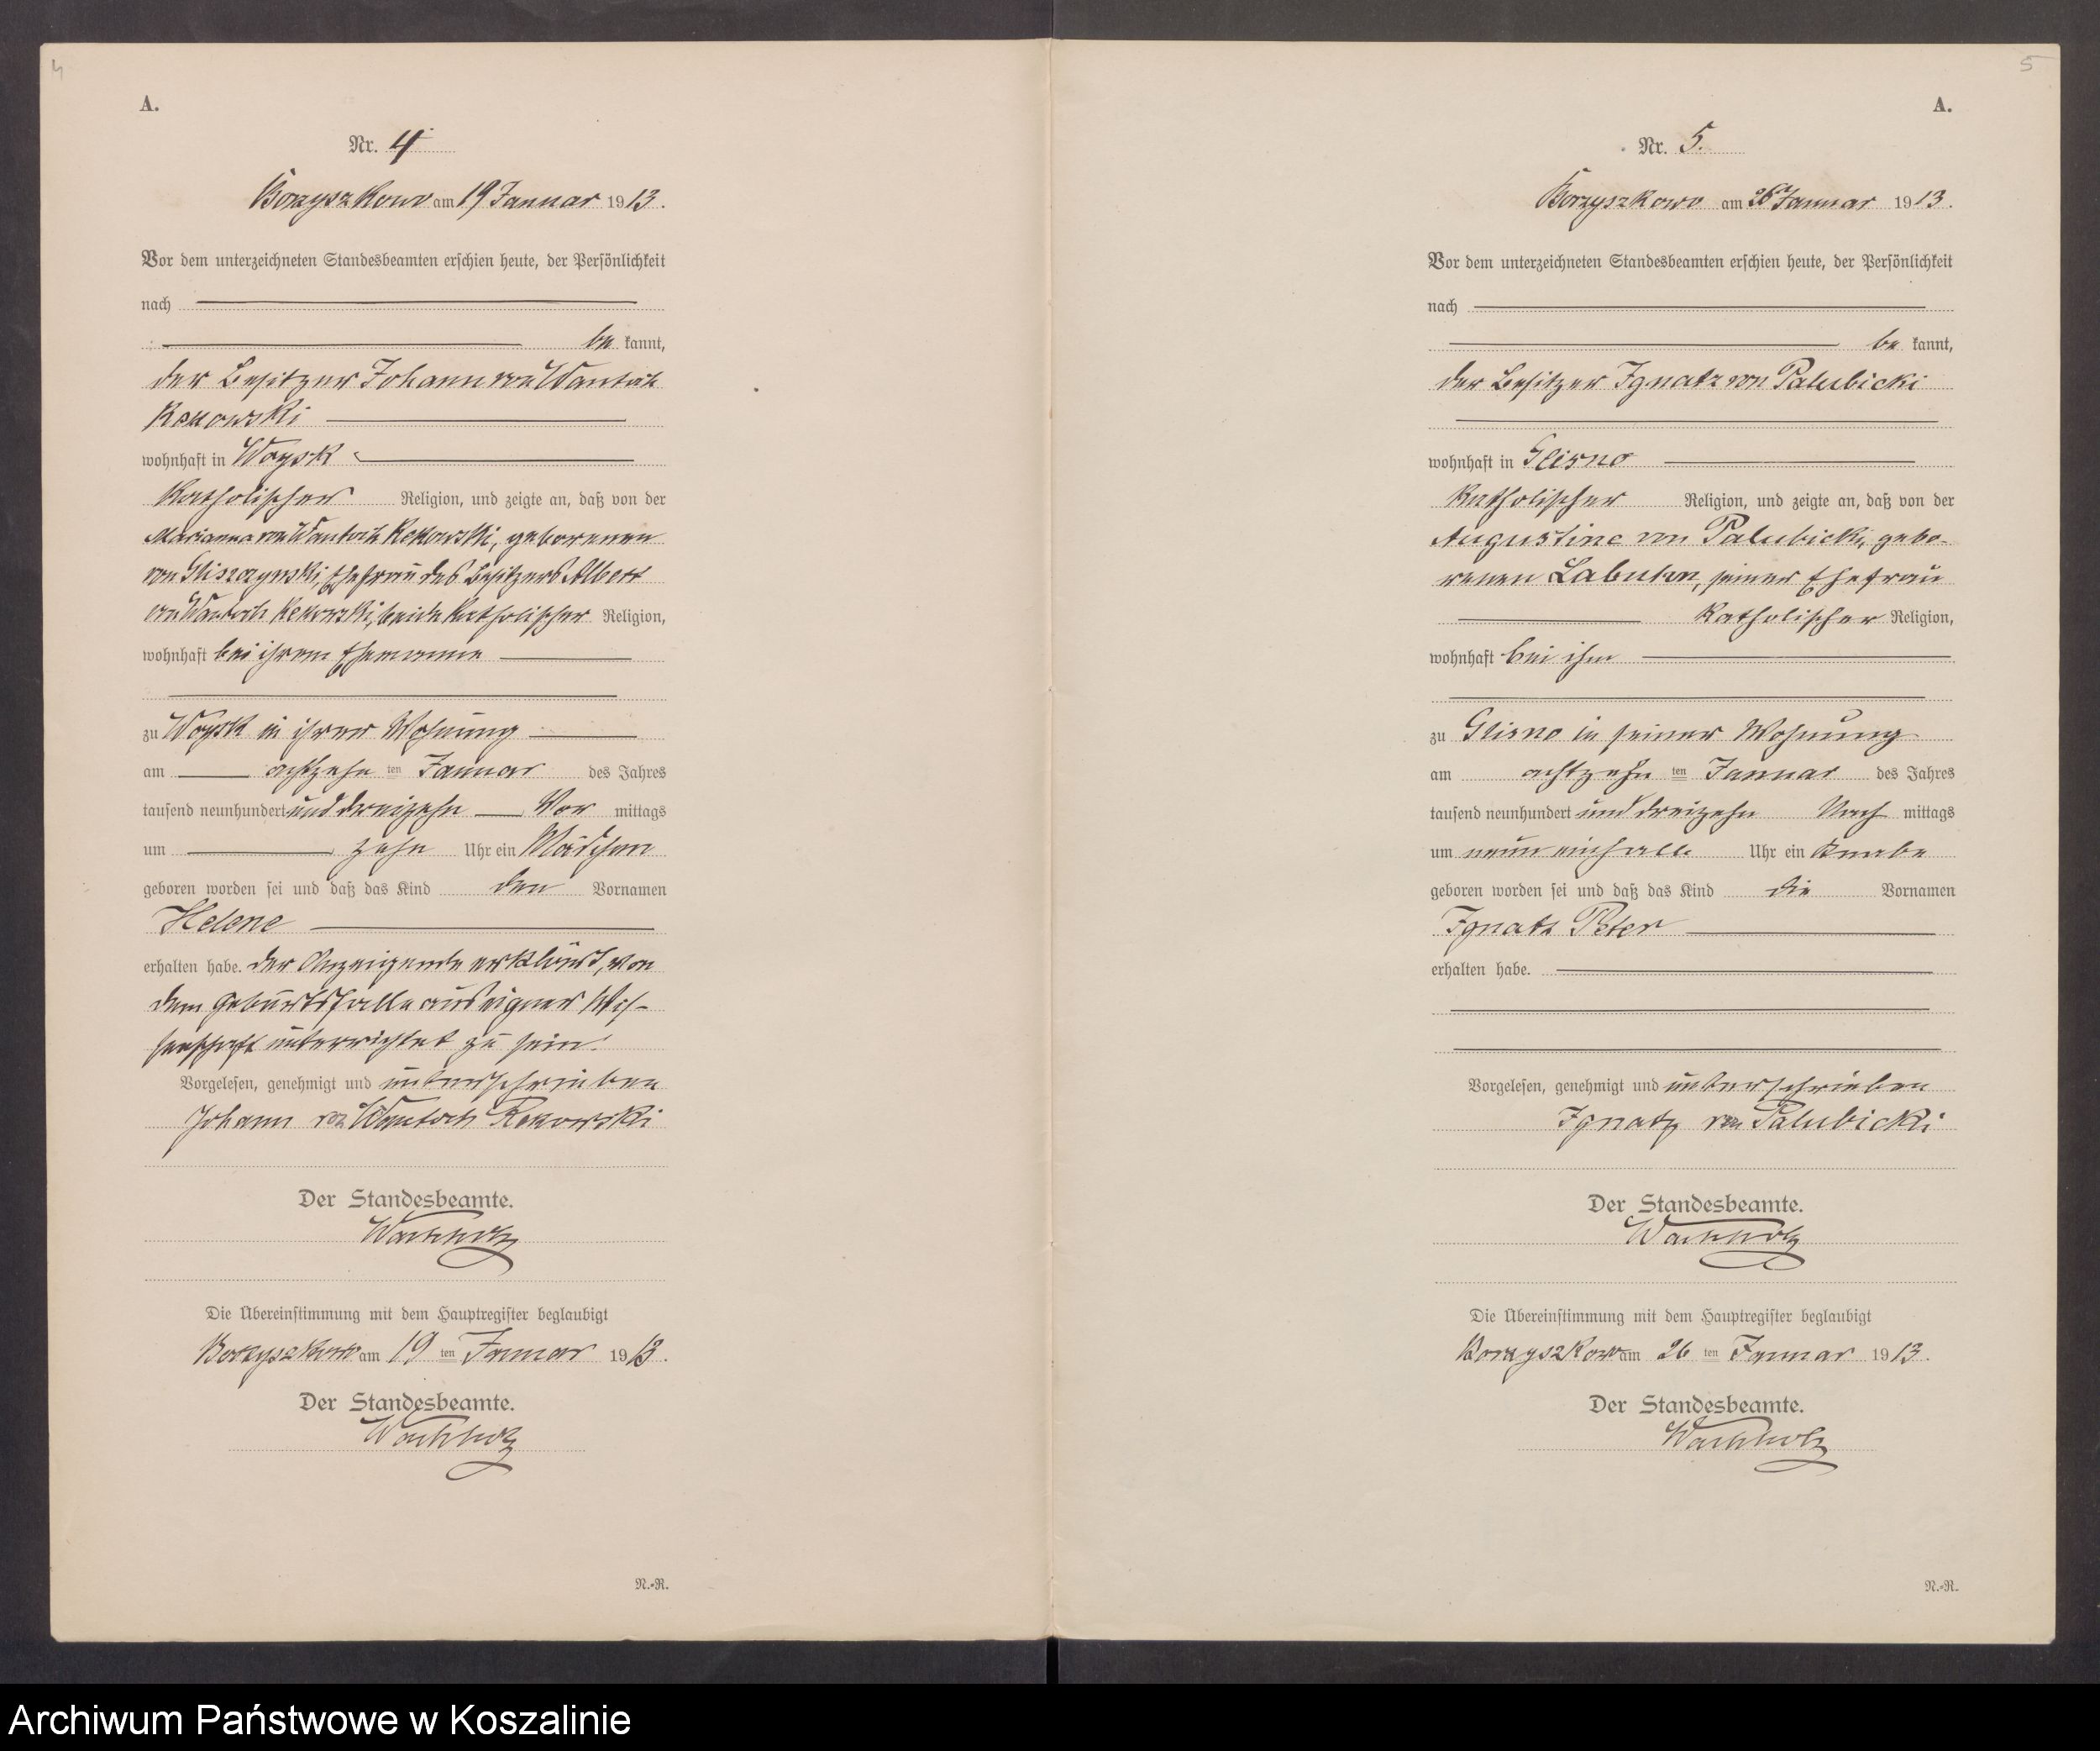 4
A.
Nr. 4
Borzyszkowo am 19 Januar 1913.
Vor dem unterzeichneten Standesbeamten erschien heute, der Persönlichkeit
nach
be kannt,
der Besitzer Johann von Wantoch
Rekowski
wohnhaft in Woysk
katholischer Religion, und zeigte an, daß von der
Marianna von Wantoch Rekowski, geborenen
von Gliszczynski, Ehefrau des Besitzers Albert
von Wantoch Rekowski, beide katholischer Religion,
wohnhaft bei ihrem Ehemanne
zu Woysk in ihrer Wohnung
am achtzehn ten Januar des Jahres
tausend neunhundert und dreizehn Vor mittags
um zehn Uhr ein Mädchen
geboren worden sei und daß das Kind den Vornamen
Helene
erhalten habe. Der Anzeigende erklärt, von
dem Geburtsfalle aus eigner Wis-
senschaft unterrichtet zu sein.
Vorgelesen, genehmigt und unterschrieben
Johann von Wantoch Rekowski
Der Standesbeamte.
Wachholz
Die Übereinstimmung mit dem Hauptregister beglaubigt
Borzyszkowo am 19 ten Januar 1913.
Der Standesbeamte.
Wachholz
N.-R.
5
A.
Nr. 5.
Borzyszkowo am 26 Januar 1913.
Vor dem unterzeichneten Standesbeamten erschien heute, der Persönlichkeit
nach
be kannt,
der Besitzer Ignatz von Palubicki
wohnhaft in Glisno
katholischer Religion, und zeigte an, daß von der
Augustine von Palubicki, gebo-
renen Labuhn, seiner Ehefrau
katholischer Religion,
wohnhaft bei ihm
zu Glisno in seiner Wohnung
am achtzehn ten Januar des Jahres
tausend neunhundert und dreizehn Nach mittags
um neun einhalb Uhr ein Knabe
geboren worden sei und daß das Kind die Vornamen
Ignatz Peter
erhalten habe.
Vorgelesen, genehmigt und unterschrieben
Ignatz von Palubicki
Der Standesbeamte.
Wachholz
Die Übereinstimmung mit dem Hauptregister beglaubigt
Borzyszkowo am 26 ten Januar 1913.
Der Standesbeamte.
Wachholz
N.-R.
Archiwum Państwowe w Koszalinie